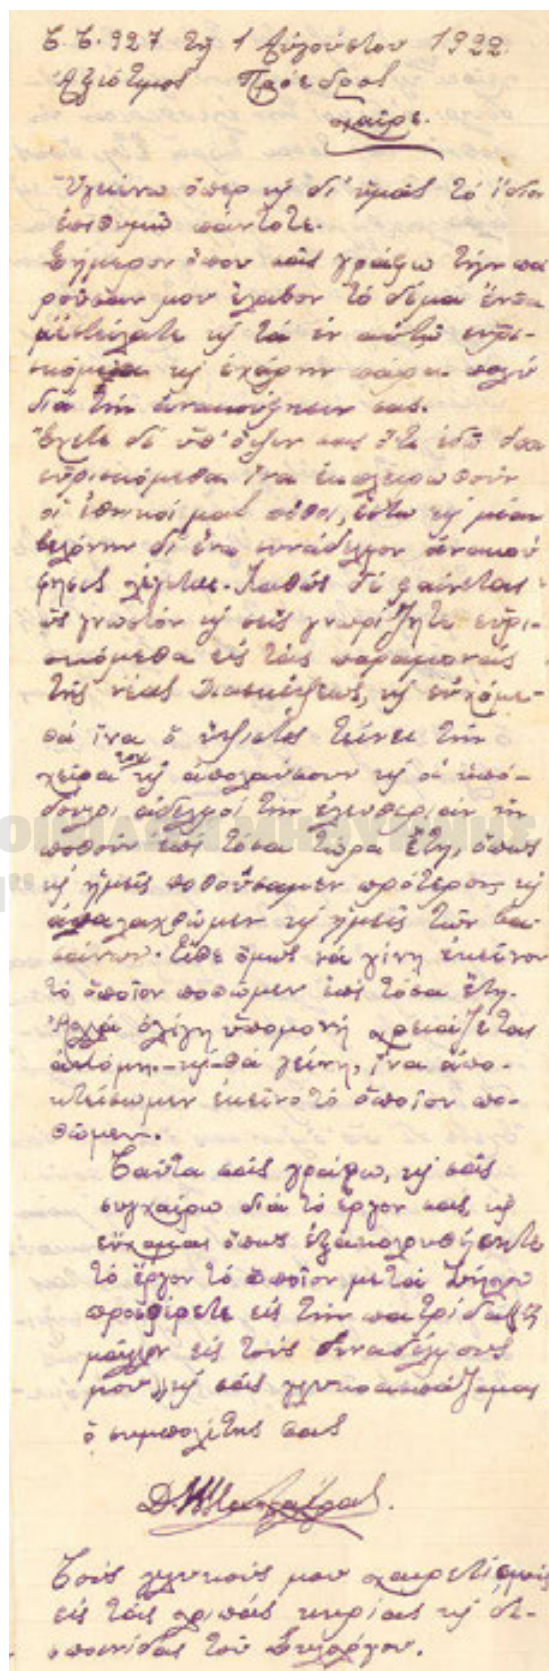 Τ.Τ. 927 τῇ 1 Αὐγούστου 1922.
Ἀξιότιμος Πρόεδρος
χαῖρε.
Ὑγιαίνω ὅπερ κὴ δι' ὑμᾶς τὸ ἴδιον
ἐπιθυμῶ πάντοτε.
Σήμερον ὅπου σᾶς γράφω τὴν πα
ροῦσαν μου ἔλαβον τὸ δέμα
κὴ τὰ ἐν αὐτῷ εὑρι-
σκόμενα κὴ ἐχάρην πάρα πολύ
διὰ τὴν ἀνακούφησιν σας.
Ἔχετε δὲ ὑπ' ὄψιν σας ὅτι ἐδῶ ὅσοι
εὑρισκόμεθα ἵνα ἐκπληρωθοῦν
οἱ ἐθνικοί μας πόθοι, ἔστω κὴ μίαν
βελόνην δι' ἕνα συνάδελφον ἀνακού
φησις λέγεται. Καθὼς δὲ φαίνεται
ὡς γνωστόν κὴ σεῖς γνωρίζητε εὑρι-
σκόμεθα εἰς τὰς παραμονὰς
τῆς νέας διασκέψεως, κὴ εὐχόμε-
θα ἵνα ὁ ὕψιστος τείνει τὴν
χεῖρα του κὴ ἀπολαύσουν κὴ οἱ ὑπό-
δουλοι ἀδελφοί τὴν ἐλευθερίαν τὴν
ποθοῦν ἐπὶ τόσα τώρα ἔτη, ὅπως
κὴ ἡμεῖς ποθούσαμεν πρότερον, κὴ
ἀπαλαχθῶμεν κὴ ἡμεῖς τῶν βα-
σάνων. Εἴθε ὅμως νὰ γίνῃ ἐκεῖνον
τὸ ὁποῖον ποθῶμεν ἐπὶ τόσα ἔτη.
Ἀλλὰ ὀλίγη ὑπομονή χρειάζεται
ἀκόμη. κὴ θὰ γείνῃ, ἵνα ἀπο-
κτήσωμεν ἐκεῖνο τὸ ὁποῖον πο-
θῶμεν.
Ταῦτα σᾶς γράφω, κὴ σᾶς
συγχαίρω διὰ τὸ ἔργον σας, κὴ
εὔχομαι ὅπως ἐξακολουθήσητε
τὸ ἔργον τὸ ὁποῖον μετὰ ζήλου
προσφέρετε εἰς τὴν πατρίδα κὴ
μᾶλλον εἰς τοὺς συναδέλφους
μου, κὴ σᾶς γλυκοασπάζομαι
ὁ συμπολίτης σας
Τοὺς γλυκούς μου χαιρετισμούς
εἰς τὰς λοιπάς κυρίας κὴ δε-
σποινίδας τοῦ Συλλόγου.